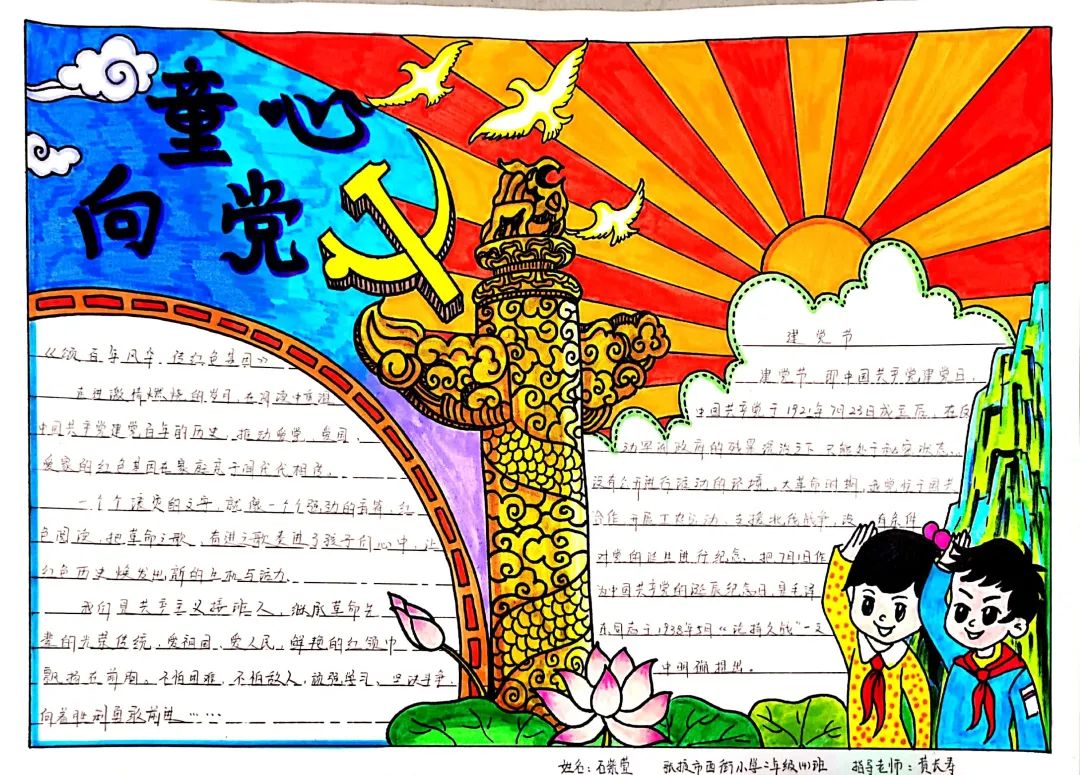 童心
向党
《颂百年风华 传红色基因》
在进激情燃烧的岁月，在阅读中重温
中国共产党建党百年的历史，推动爱党、爱国、
爱家的红色基因在家庭亲子间代代相传。
一个个滚烫的文字，就像一个个跳动的音符，红
色阅读，把革命之歌、奋进之歌奏进了孩子们心中，让
红色历史焕发出新的生机与活力。
我们是共产主义接班人，继承革命先
辈的光荣传统，爱祖国、爱人民，鲜艳的红领巾
飘扬在前胸。不怕困难、不怕敌人，顽强学习、坚决斗争，
向着胜利勇敢前进……
建党节
建党节，即中国共产党建党日，
中国共产党于1921年7月23日成立后，在反
动军阀政府的残暴统治下只能处于秘密状态，
没有公开进行活动的环境。大革命时期，我党忙于国共
合作、开展工农运动、支援北伐战争，没有条件
对党的诞生进行纪念。把7月1日作
为中国共产党的诞辰纪念日，是毛泽
东同志于1938年5月《论持久战》一文
中明确提出。
姓名：石紫萱 市西街小学二年级(4)班 指导老师：黄长寿